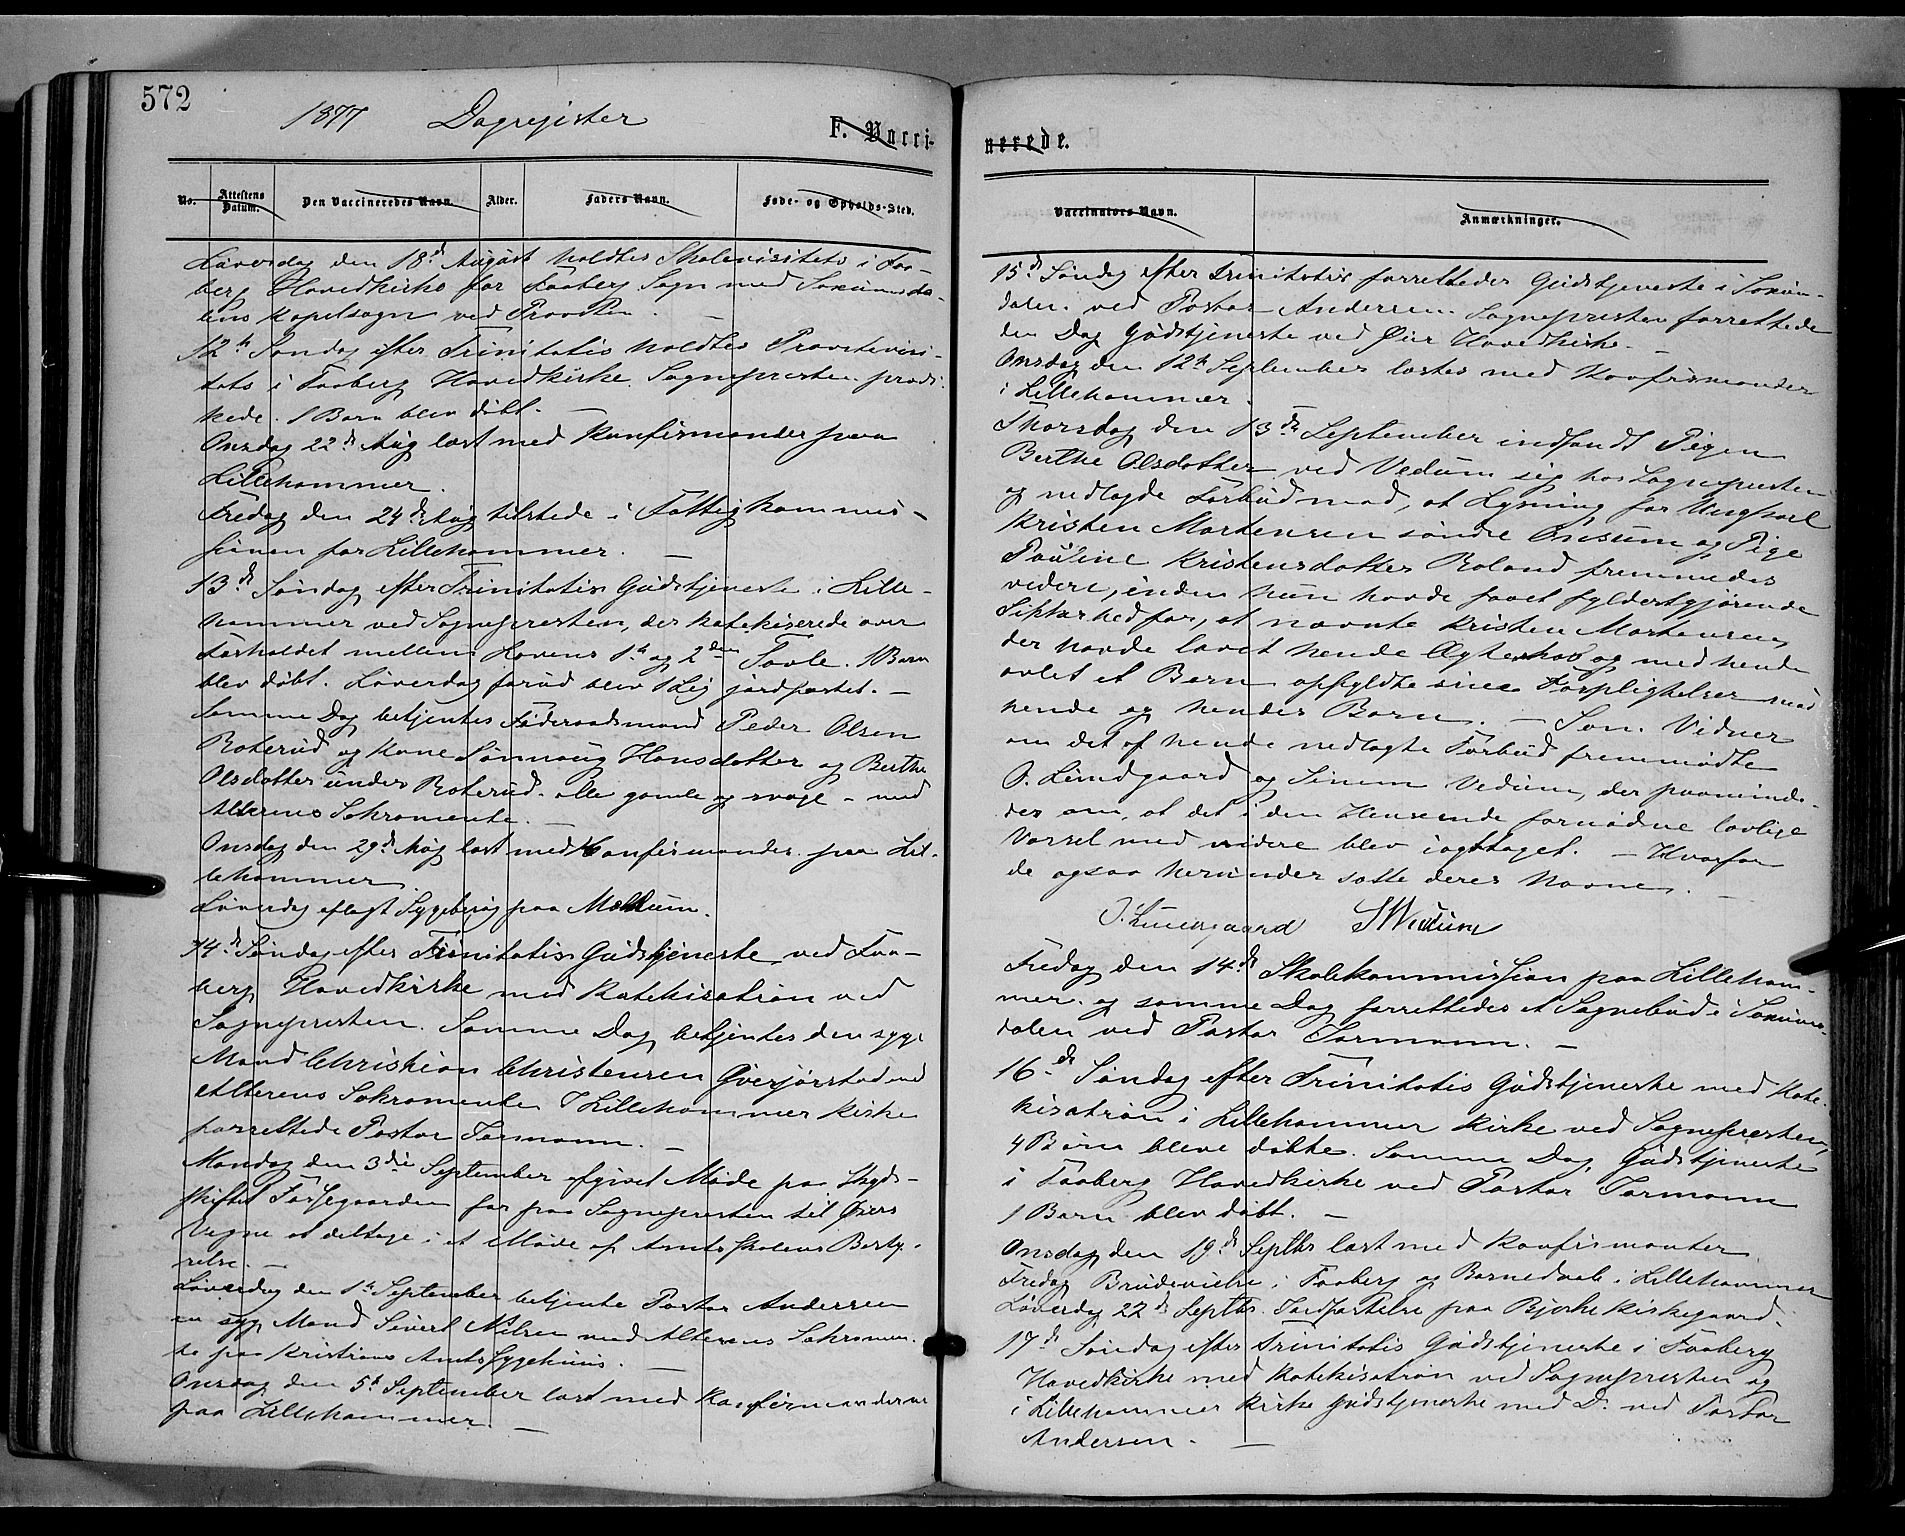 572
1877 Dagregister
F. Vacci-
No. Attestens Datum. Den Vaccineredes Navn. Alder. Faders Navn. Føde- og Opholds-Sted.
Løverdag den 18d August holdtes Skolevisitats i Faa-
berg Hovedkirke for Faaberg Sogn med Saxumda-
lens Kapelsogn ved Provsten. —
12te Søndag efter Trinitatis holdtes Provstevisi-
tats i Faaberg Hovedkirke. Sognepresten prædi-
kede. 1 Barn blev døbt. —
Onsdag 22d Aug læst med Konfirmander paa
Lillehammer.
Fredag den 24d Aug tilstede i Fattigkommis-
sionen for Lillehammer. —
13d Søndag efter Trinitatis Gudstjeneste i Lille-
hammer ved Sognepresten, der katekiserede over
Forholdet mellem Lovens 1te og 2den Tavle. 1 Barn
blev døbt. Løverdag forud blev 1 Lig jordfæstet. —
Samme Dag betjentes Føderaadsmand Peder Olsen
Roterud og Kone Sønnaug Hansdatter og Berthe
Olsdatter under Roterud. alle gamle og svage – med
Alterens Sakramente. —
Onsdag den 29d Aug læst med Konfirmander paa Lil-
lehammer
Løverdag aflagt Sygebesøg paa Meldum.
14d Søndag efter Trinitatis Gudstjeneste ved Faa-
berg Hovedkirke med Katekisation ved
Sognepresten. Samme Dag betjentes den syge
Mand Christian Christensen Gverjørstad med
Alterens Sakramente. I Lillehammer Kirke
forrettede Pastor Tarmann. —
Mandag den 3die September afgivet Møde paa Skyds-
skiftet Fossegaarden for paa Sognepresten til Øiers
Vegne at deltage i et Møde af Amtsskolens Besty-
relse. —
Løverdag den 1te September betjente Pastor Andersen
en syg Mand Sivert Nilsen med Alterens Sakramen-
te paa Kristians Amts Sygehuus. —
Onsdag den 5te September læst med Konfirmanderne
paa Lillehammer. —
nerede.
Vaccinators Navn. Anmærkninger.
15d Søndag efter Trinitatis forrettedes Gudstjeneste i Saxum-
dalen ved Pastor Andersen. Sognepresten forrettede
den Dag Gudstjeneste ved Øier Hovedkirke. —
Onsdag den 12te September læstes med Konfirmander
i Lillehammer.
Thorsdag den 13de September indfandt Pigen
Berthe Olsdatter ved Vedum sig hos Sognepresten
og nedlagde Forbud mod, at Lysning for Ungkarl
Kristen Mortensen søndre Onsum og Pige
Pauline Kristensdatter Roland fremmedes
videre, inden hun havde faaet fyldestgjørende
Sikkerhed for, at nævnte Kristen Mortensen,
der havde lovet hende Ægteskab og med hende
avlet et Barn opfyldte sine Forpligtelser mod
hende og hendes Barn. — Som Vidner
om det af hende nedlagte Forbud fremmødte
O. Lundgaard og Simen Vedum, der paaminde-
des om, at det i den Henseende fornødne lovlige
Varsel med videre blev iagttaget. — Hvorfor
de ogsaa herunder satte deres Navne. —
O. Lundgaard S Wedum
Fredag den 14d Skolekommission paa Lilleham-
mer. og samme Dag forrettedes et Sognebud i Saxum-
dalen ved Pastor Tarmann. —
16de Søndag efter Trinitatis Gudstjeneste med Kate-
kisation i Lillehammer Kirke ved Sognepresten,
4 Børn bleve døbte. Samme Dag Gudstjeneste
i Faaberg Hovedkirke ved Pastor Tarmann
1 Barn blev døbt. —
Onsdag den 19d Septbr læst med Konfirmanter
Fredag Brudevielse i Faaberg og Barnedaab i Lillehammer
Løverdag 22d Septbr. Jordfæstelse paa Bjerke Kirkegaard.
17d Søndag efter Trinitatis Gudstjeneste i Faaberg
Hovedkirke med Katekisation ved Sognepresten og
i Lillehammer Kirke Gudstjeneste med D. ved Pastor
Andersen. —